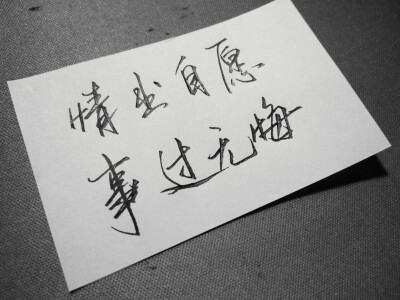 情出自愿
事过无悔